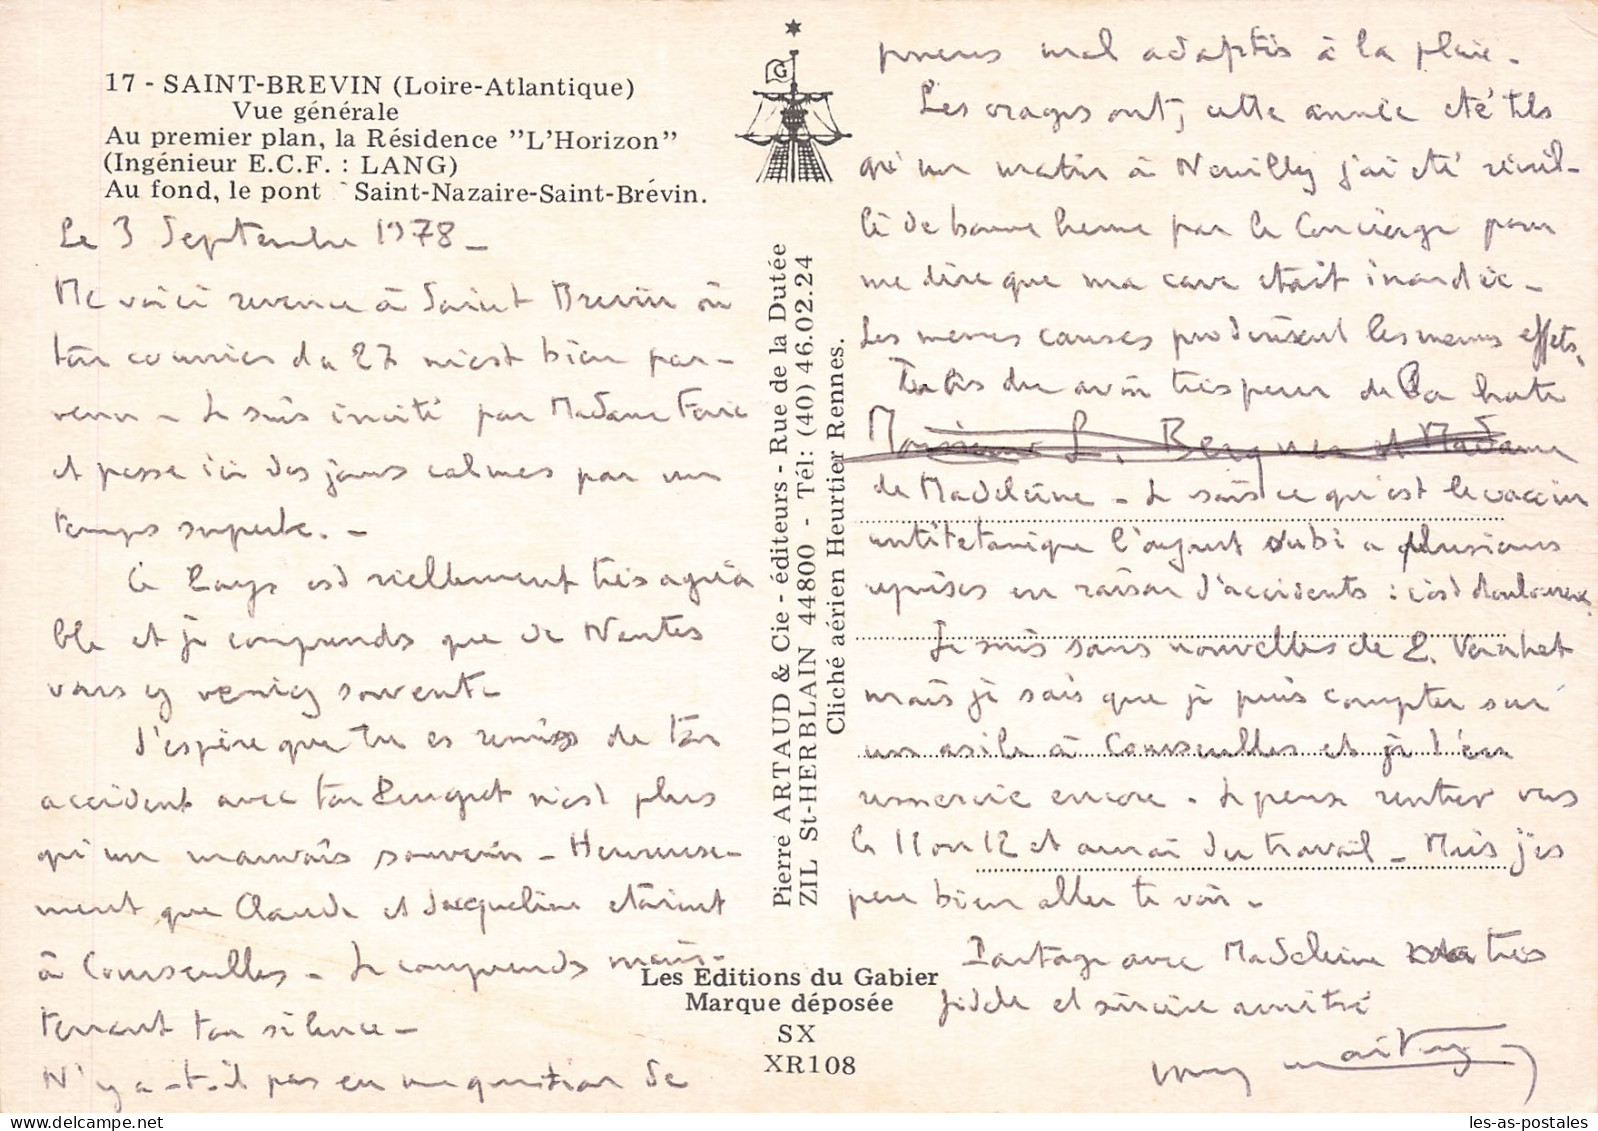 17 - SAINT-BREVIN (Loire-Atlantique)
Vue générale
Au premier plan, la Résidence "L'Horizon"
(Ingénieur E.C.F. : LANG)
Au fond, le pont Saint-Nazaire-Saint-Brévin.
Le 3 Septembre 1978 -
Me voici revenu à Saint Brevin où
ton courrier du 27 m'est bien par-
venu - Je suis invité par Madame
et passe ici des jours calmes par un
temps superbe. -
Ce Pays est réellement très agréa
ble et je comprends que de Nantes
vous y veniez souvent -
J'espère que tu es remis de ton
accident avec ton Peugeot n'est plus
qu'un mauvais souvenir - Heureuse-
ment que Claude et Jacqueline étaient
à Courseulles - Je comprends main-
tenant ton silence -
N'y a-t-il pas eu une question de
Pierre ARTAUD & Cie - éditeurs - Rue de la Dutée
ZIL St-HERBLAIN 44800 - Tél: (40) 46.02.24
Cliché aérien Heurtier Rennes.
Les Editions du Gabier
Marque déposée
SX
XR108
G
pneus mal adaptés à la pluie -
Les orages ont, cette année été tels
qu'un matin à Neuilly j'ai été réveil-
lé de bonne heure par le Concierge pour
me dire que ma cave était inondée -
Les mêmes causes produisent les mêmes effets.
Tu as du avoir très peur de la chute
Monsieur L. et Madame
de Madeleine - Je sais ce qu'est le vaccin
antitetanique l'ayant subi a plusieurs
reprises en raison d'accidents : c'est douloureux.
Je suis sans nouvelles de
mais je sais que je puis compter sur
un asile à Courseulles et je t'en
remercie encore - Je pense rentrer vers
le 11 ou 12 et aurai du travail - Mais j'es
père bien aller te voir -
Partage avec Madeleine ma très
fidèle et sincère amitié
les-as-postales